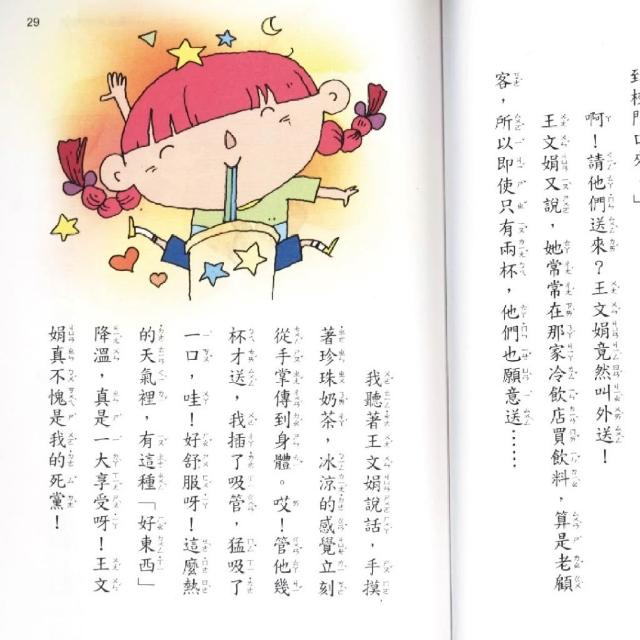 到校門口來。」
啊！請他們送來？王文娟竟然叫外送！
王文娟又說，她常常在那家冷飲店買飲料，算是老顧
客，所以即使只有兩杯，他們也願意送……
我聽著王文娟說話，手摸
著珍珠奶茶，冰涼的感覺立刻
從手掌傳到身體。哎！管他幾
杯才送，我插了吸管，猛吸了
一口，哇！好舒服呀！這麼熱
的天氣裡，有這種「好東西」
降溫，真是一大享受呀！王文
娟真不愧是我的死黨！
29